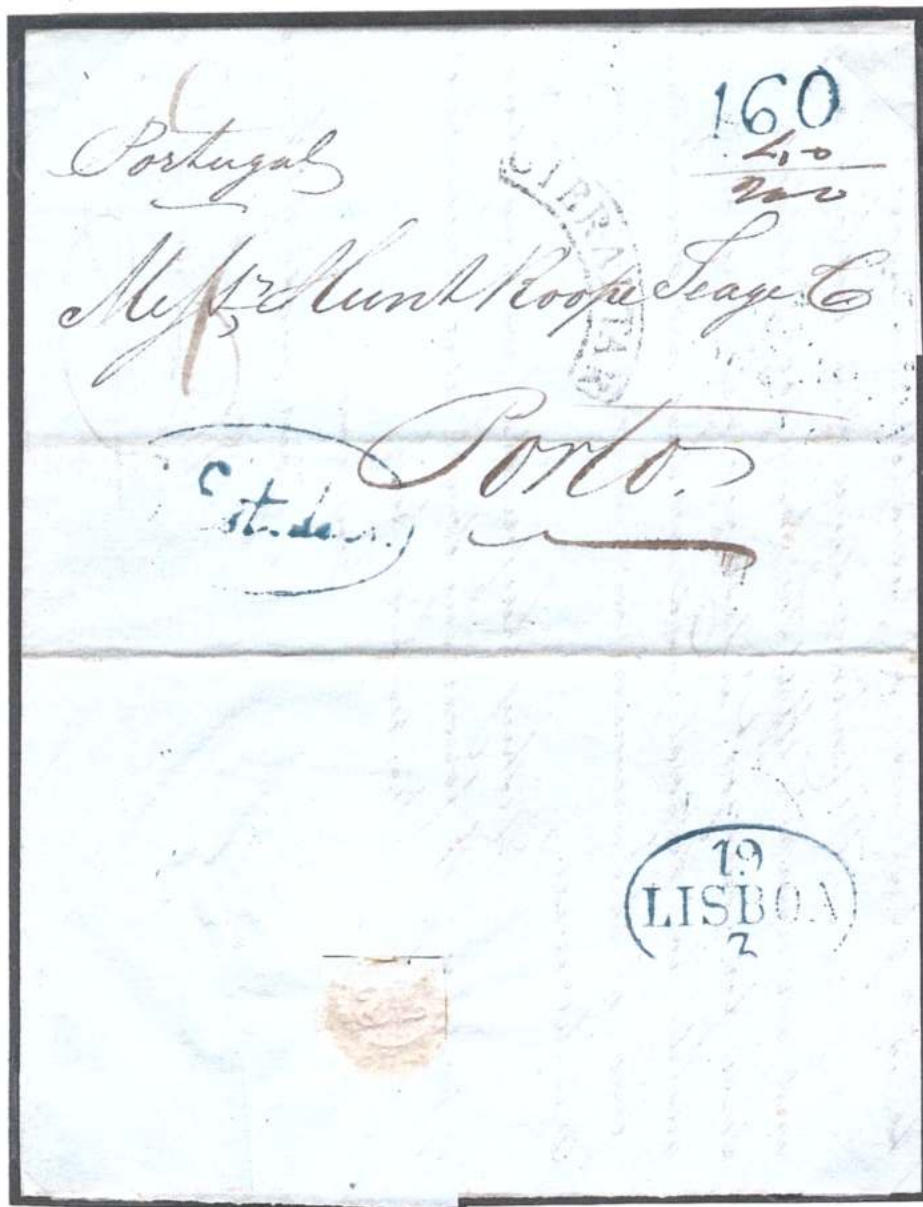 160
Portugal
40
200
GIBRALTAR
Messrs Hunt Roope Teage Co
Porto.
19
LISBOA
2